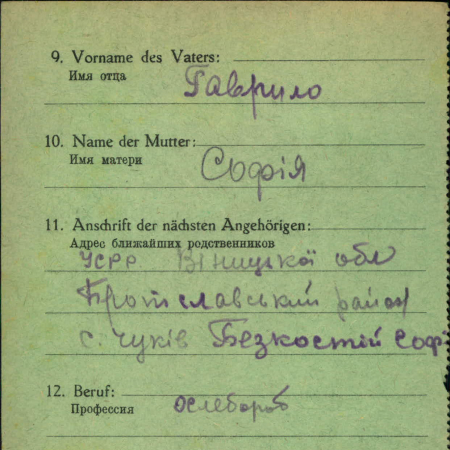 9. Vorname des Vaters:
Имя отца
Гаврило
10. Name der Mutter:
Имя матери
Софія
11. Anschrift der nächsten Angehörigen:
Адрес ближайших родственников
УСРР Віницької обл
Братславський район
с. Чуків Безкостій Софі
12. Beruf:
Профессия